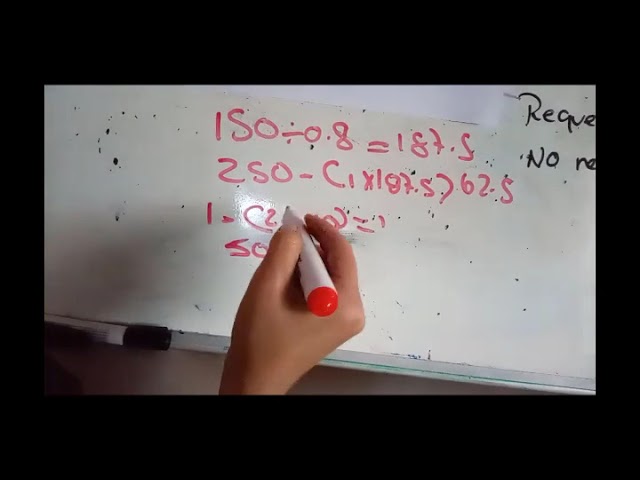 150÷0.8=187.5
250-(1×187.5)62.5
1-(2
50
Reque
No re